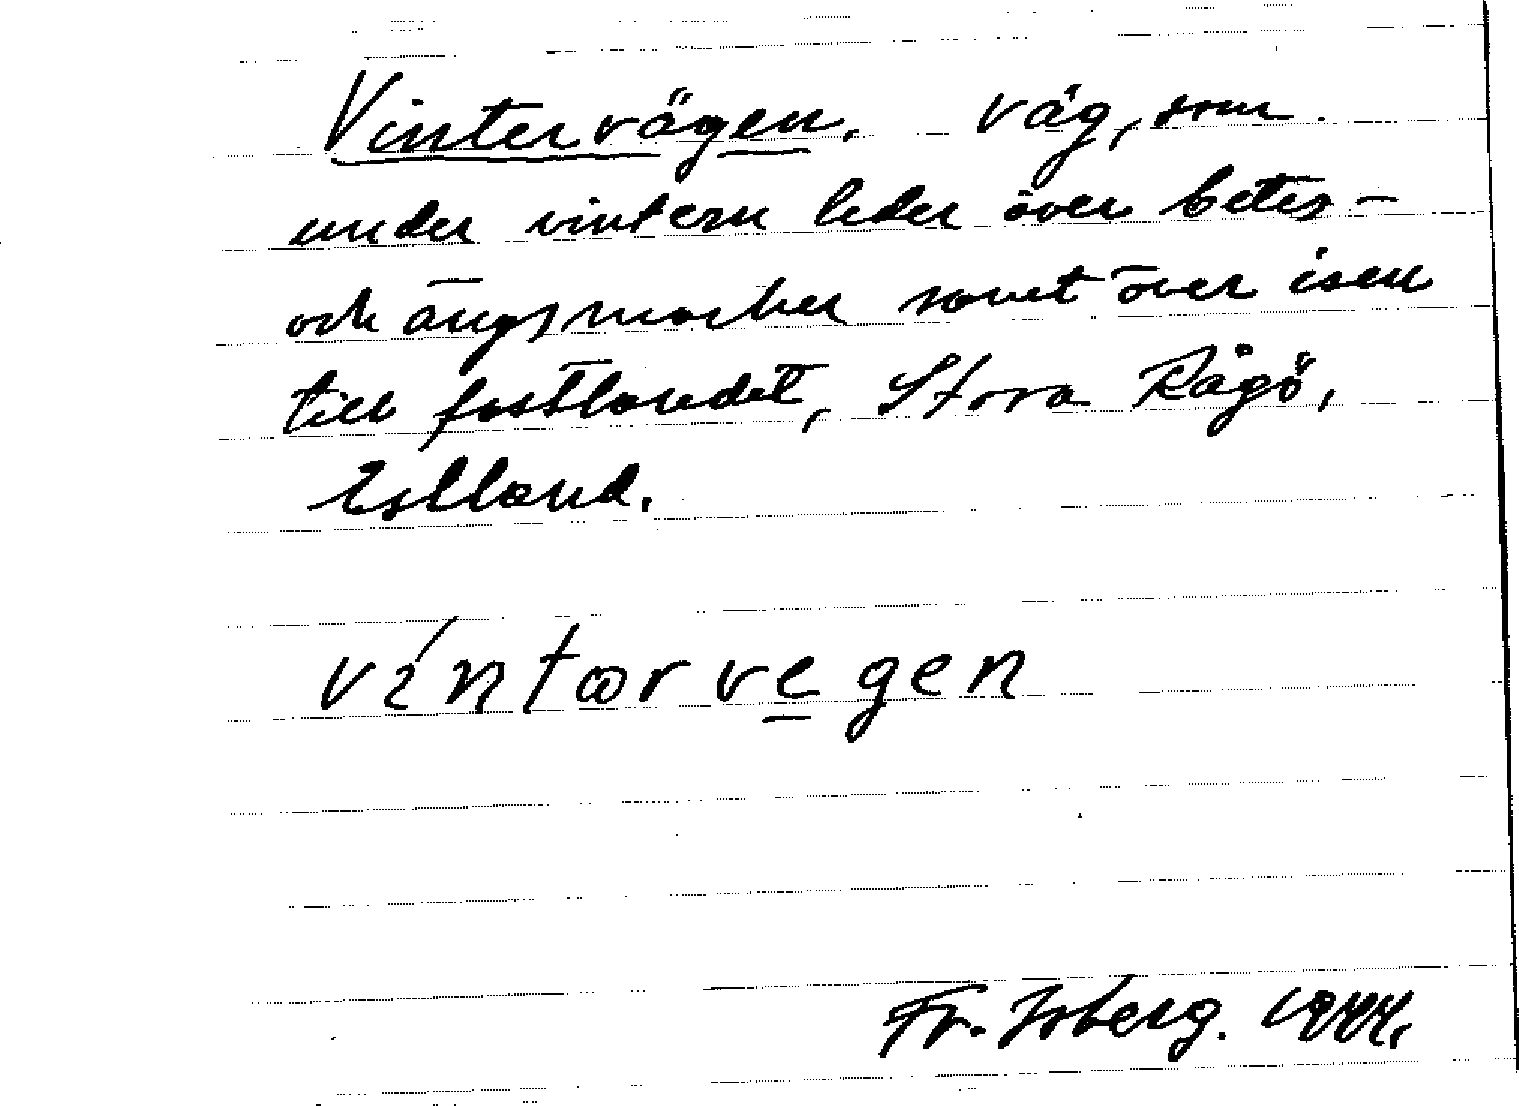 Vintervägen. väg, som
under vintern leder över betes-
och ängsmarker samt över isen
till fastlandet, Stora Rågö,
Estland.
víntarvegen
Fr. Isberg. 1944.